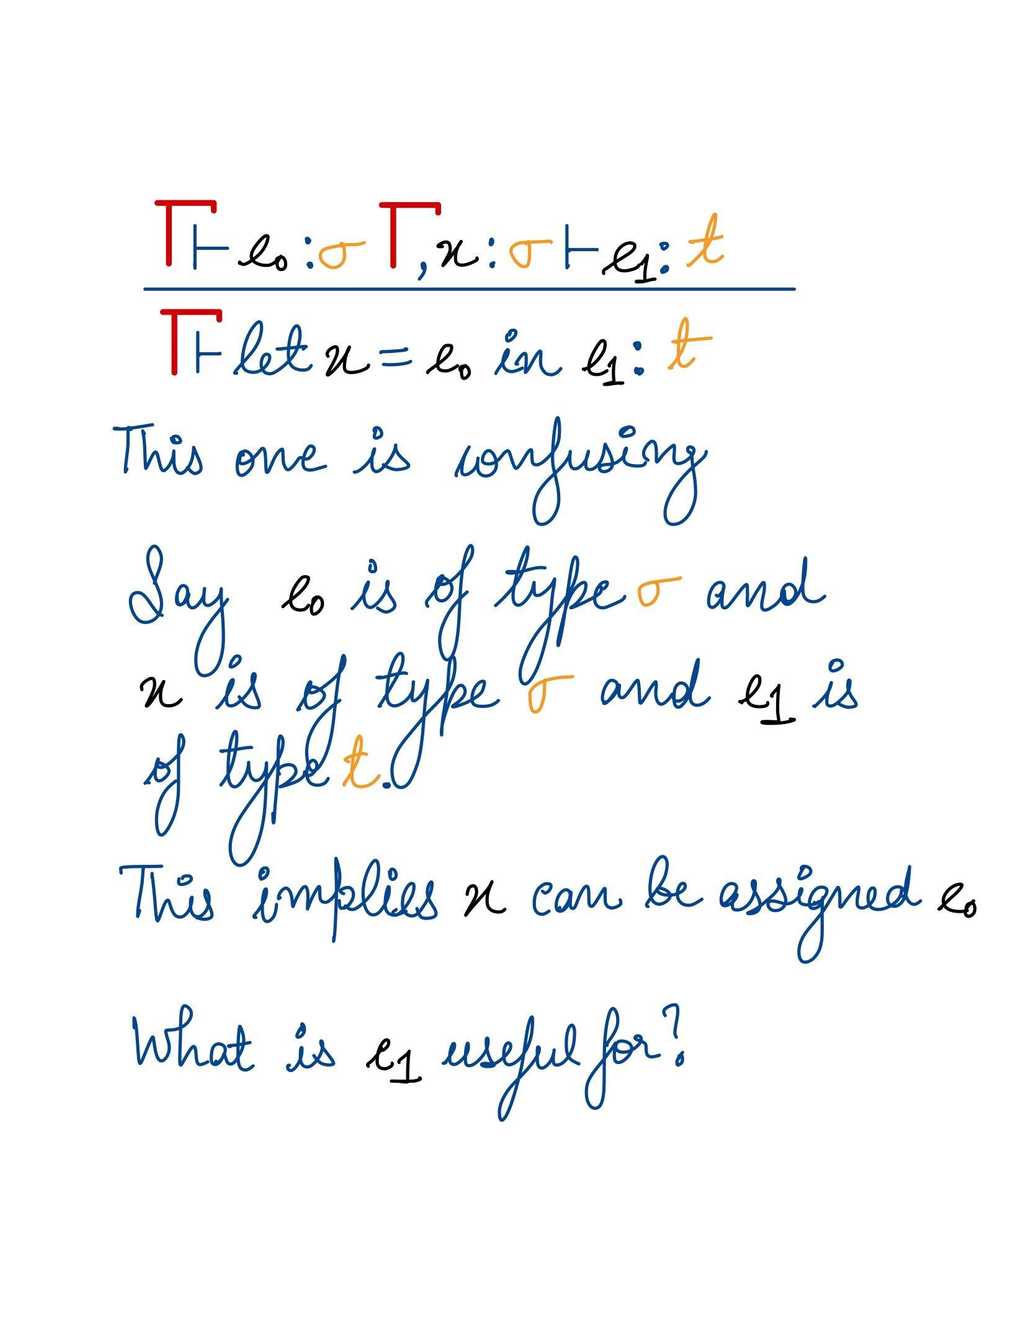 Γ⊢e₀:σ Γ,x:σ⊢e₁:t
Γ⊢let x = e₀ in e₁:t
This one is confusing
Say e₀ is of type σ and
x is of type σ and e₁ is
of type t.
This implies x can be assigned e₀
What is e₁ useful for?